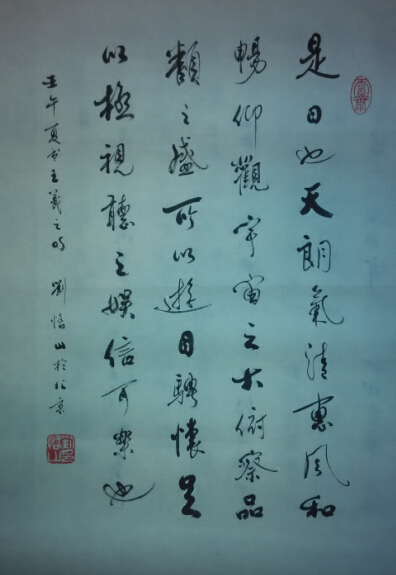 是日也天朗氣清惠風和
暢仰觀宇宙之大俯察品
類之盛所以遊目騁懷足
以極視聽之娛信可樂也
壬午夏書王羲之 劉 山於北京